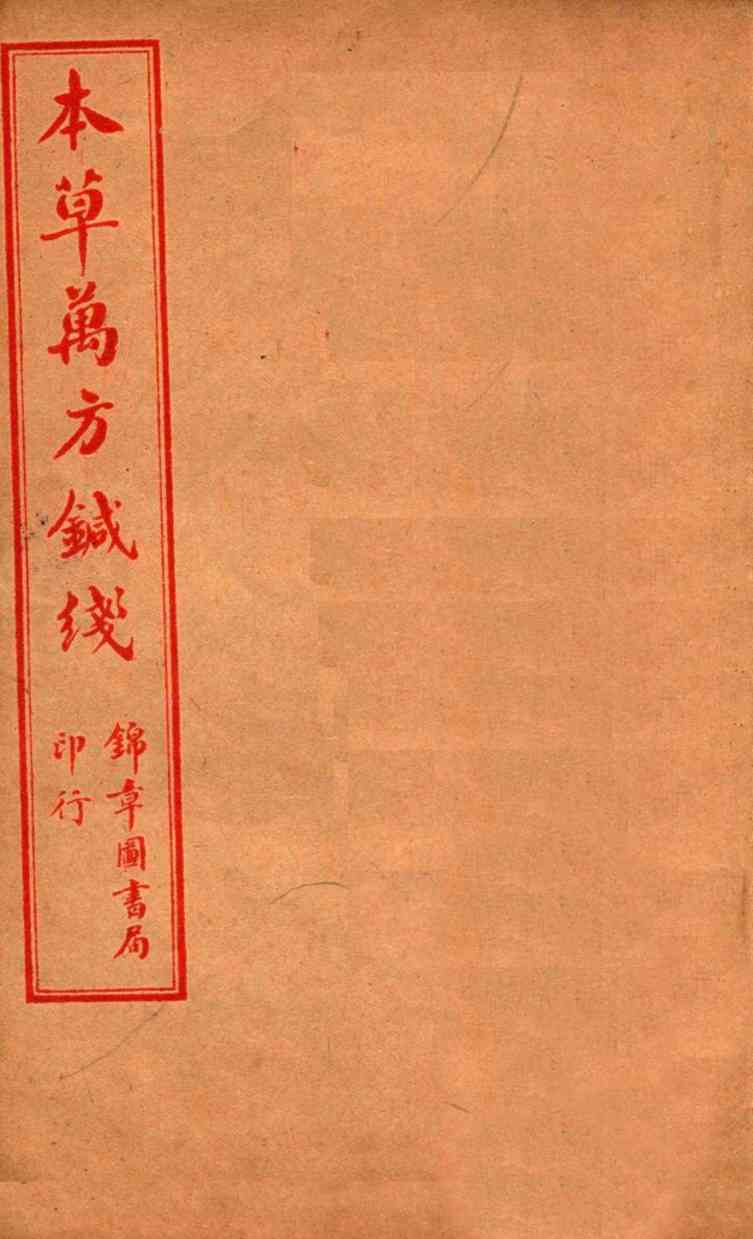 本草萬方鍼綫
錦章圖書局
印行